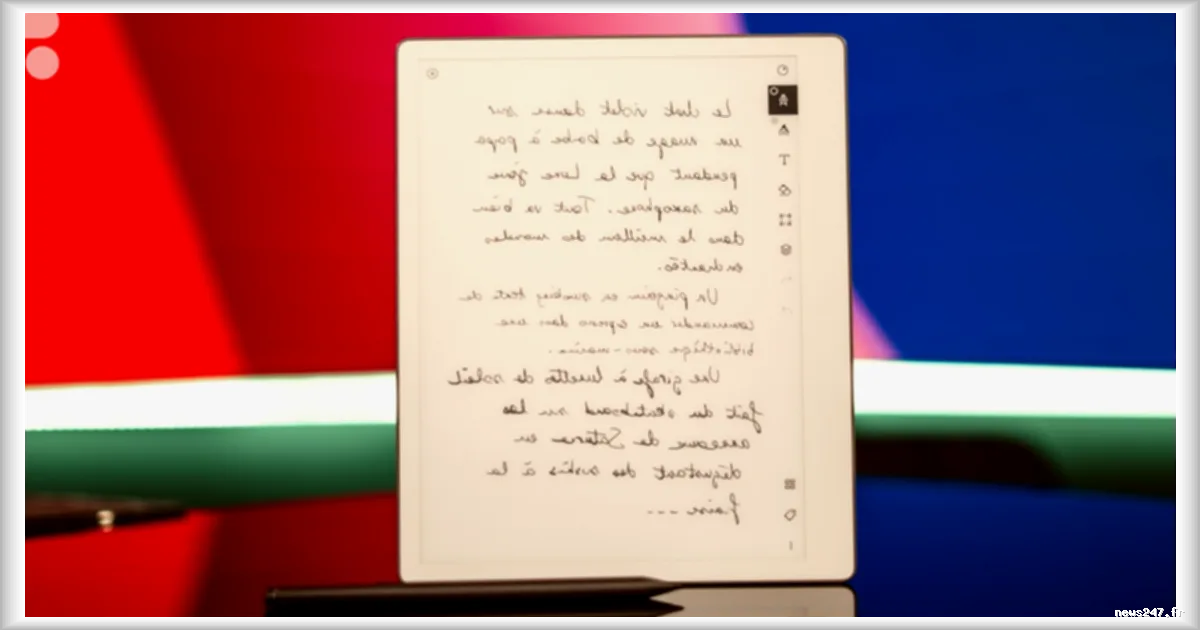 Le chat violet danse sur
un nuage de barbe à papa
pendant que la Lune joue
du saxophone. Tout va bien
dans le meilleur des mondes
enchantés.
Un pingouin en smoking tente de
commander un espresso dans une
bibliothèque sous-marine.
Une girafe à lunettes de soleil
fait du skateboard sur les
anneaux de Saturne en
dégustant des sushis à la
fraise ...
T
news247.fr